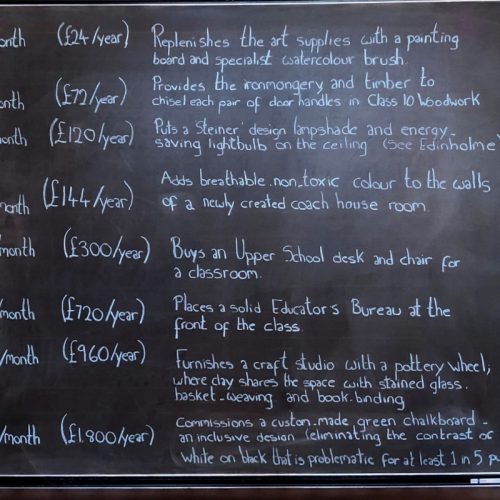 onth (£24/year) Replenishes the art supplies with a painting
board and specialist watercolour brush.
onth (£72/year) Provides the ironmongery and timber to
chisel each pair of door handles in Class 10 Woodwork
onth (£120/year) Puts a 'Steiner' design lampshade and energy-
saving lightbulb on the ceiling (see Edinholme
month (£144/year) Adds breathable non-toxic colour to the walls
of a newly created coach house room.
/month (£300/year) Buys an Upper School desk and chair for
a classroom.
/month (£720/year) Places a solid Educator's Bureau at the
front of the class
/month (£960/year) Furnishes a craft studio with a pottery wheel,
where clay shares the space with stained glass.
basket-weaving and book.binding
/month (£1,800/year) Commissions a custom-made green chalkboard -
an inclusive design (eliminating the contrast of
white on black that is problematic for at least 1 in 5 pu